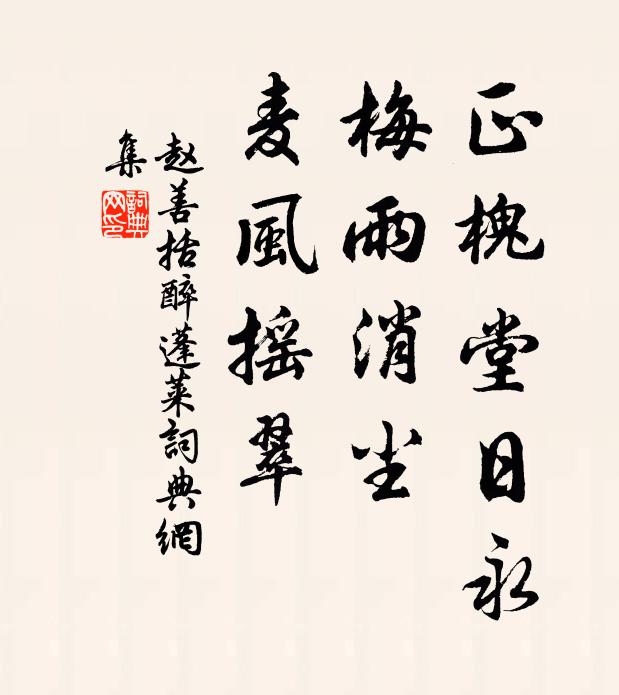 正槐堂日永
梅雨消尘
麦風摇翠
赵善括醉蓬莱詞典網
集
詞典
网印